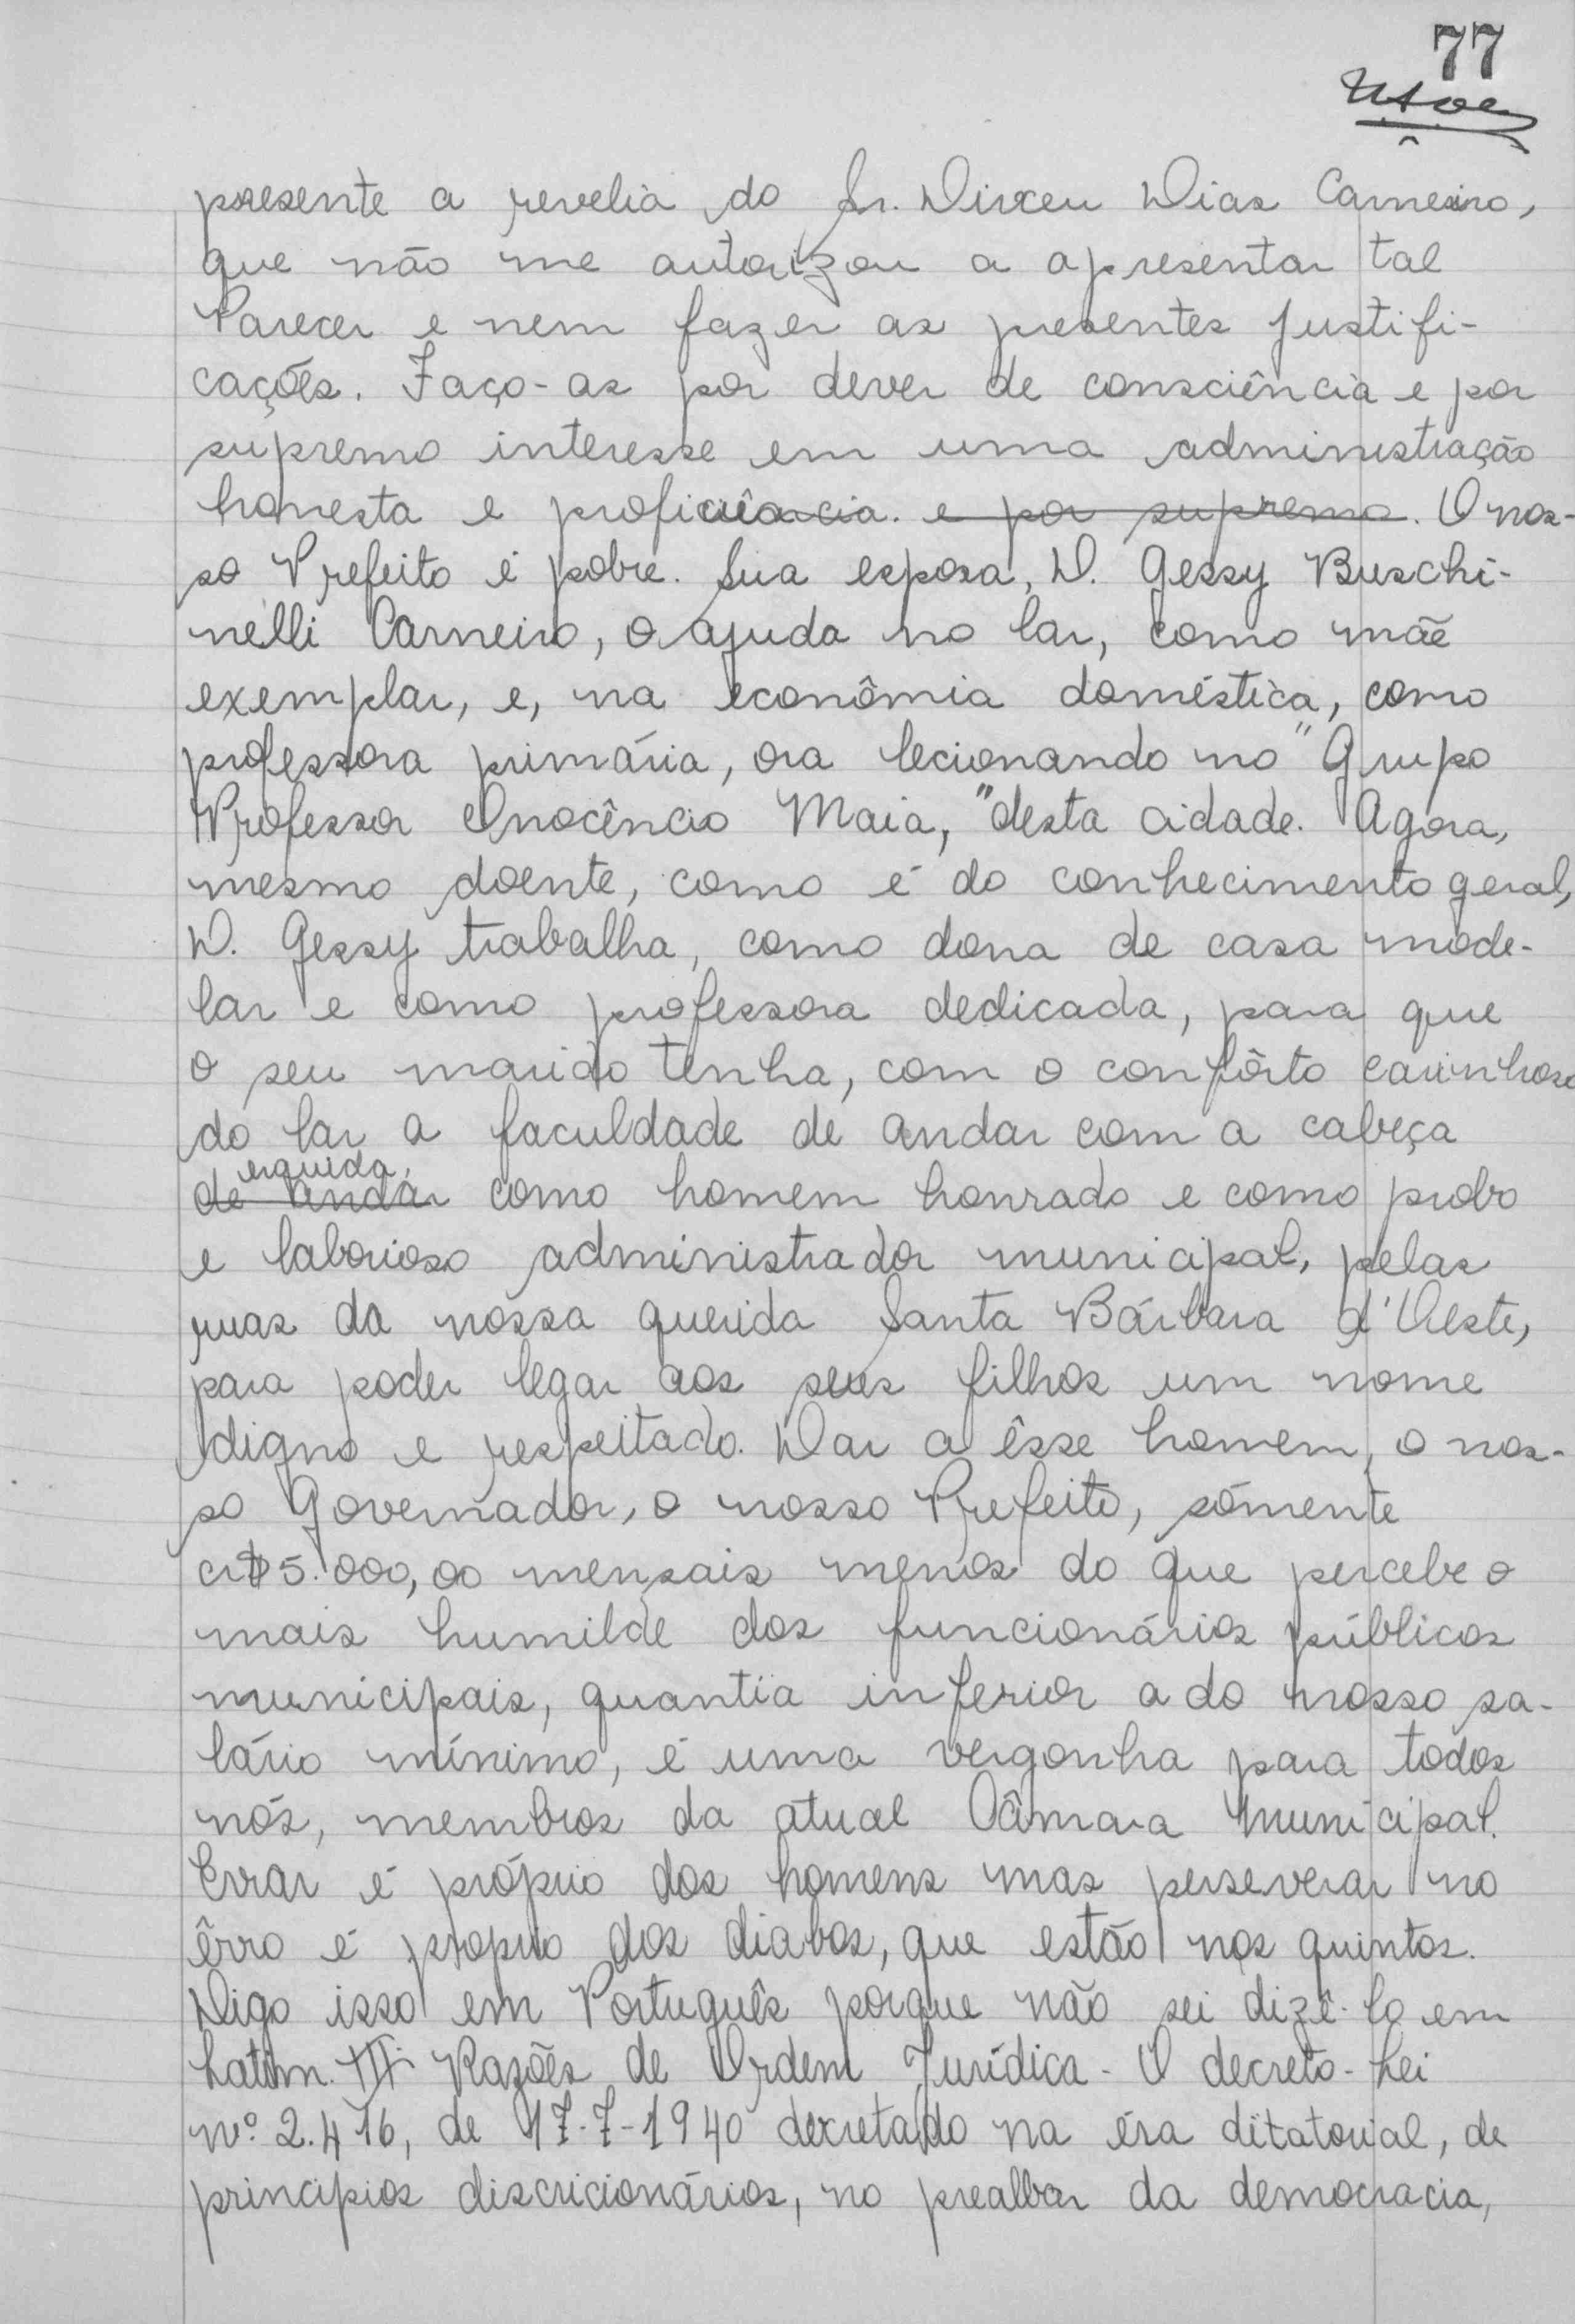 77
presente a revelia do Sr. Dirceu Dias Carneiro,
que não me autorizou a apresentar tal
Parecer e nem fazer as presentes justifi-
cações. Faço-as por dever de consciência e por
supremo interesse em uma administração
honesta e proficiência. e por supremo. O nos-
so Prefeito é pobre. Sua esposa, D. Gessy Buschi-
nelli Carneiro, o ajuda no lar, como mãe
exemplar, e, na econômia doméstica, como
professora primária, ora lecionando no "Grupo
Professor Inocêncio Maia," desta cidade. Agora,
mesmo doente, como é do conhecimento geral,
D. Gessy trabalha, como dona de casa mode-
lar e como professora dedicada, para que
o seu marido tenha, com o confôrto carinhoso
do lar a faculdade de andar com a cabeça
erguida,
de andar como homem honrado e como probo
e laborioso administrador municipal, pelas
ruas da nossa querida Santa Bárbara d'Oeste,
para poder legar aos seus filhos um nome
digno e respeitado. Dar a êsse homem, o nos-
so Governador, o nosso Prefeito, sómente
cr$ 5.000,00 mensais menos do que percebe o
mais humilde dos funcionários públicos
municipais, quantia inferior a do nosso sa-
lário mínimo, é uma vergonha para todos
nós, membros da atual Câmara Municipal.
Errar é próprio dos homens mas perseverar no
êrro é proprio dos diabos, que estão nos quintos.
Digo isso em Português porque não sei dizê-lo em
Latim. III- Razões de Ordem Jurídica - O decreto-Lei
nº 2.416, de 17-7-1940 decretado na éra ditatorial, de
principios discricionários, no prealbor da democracia,